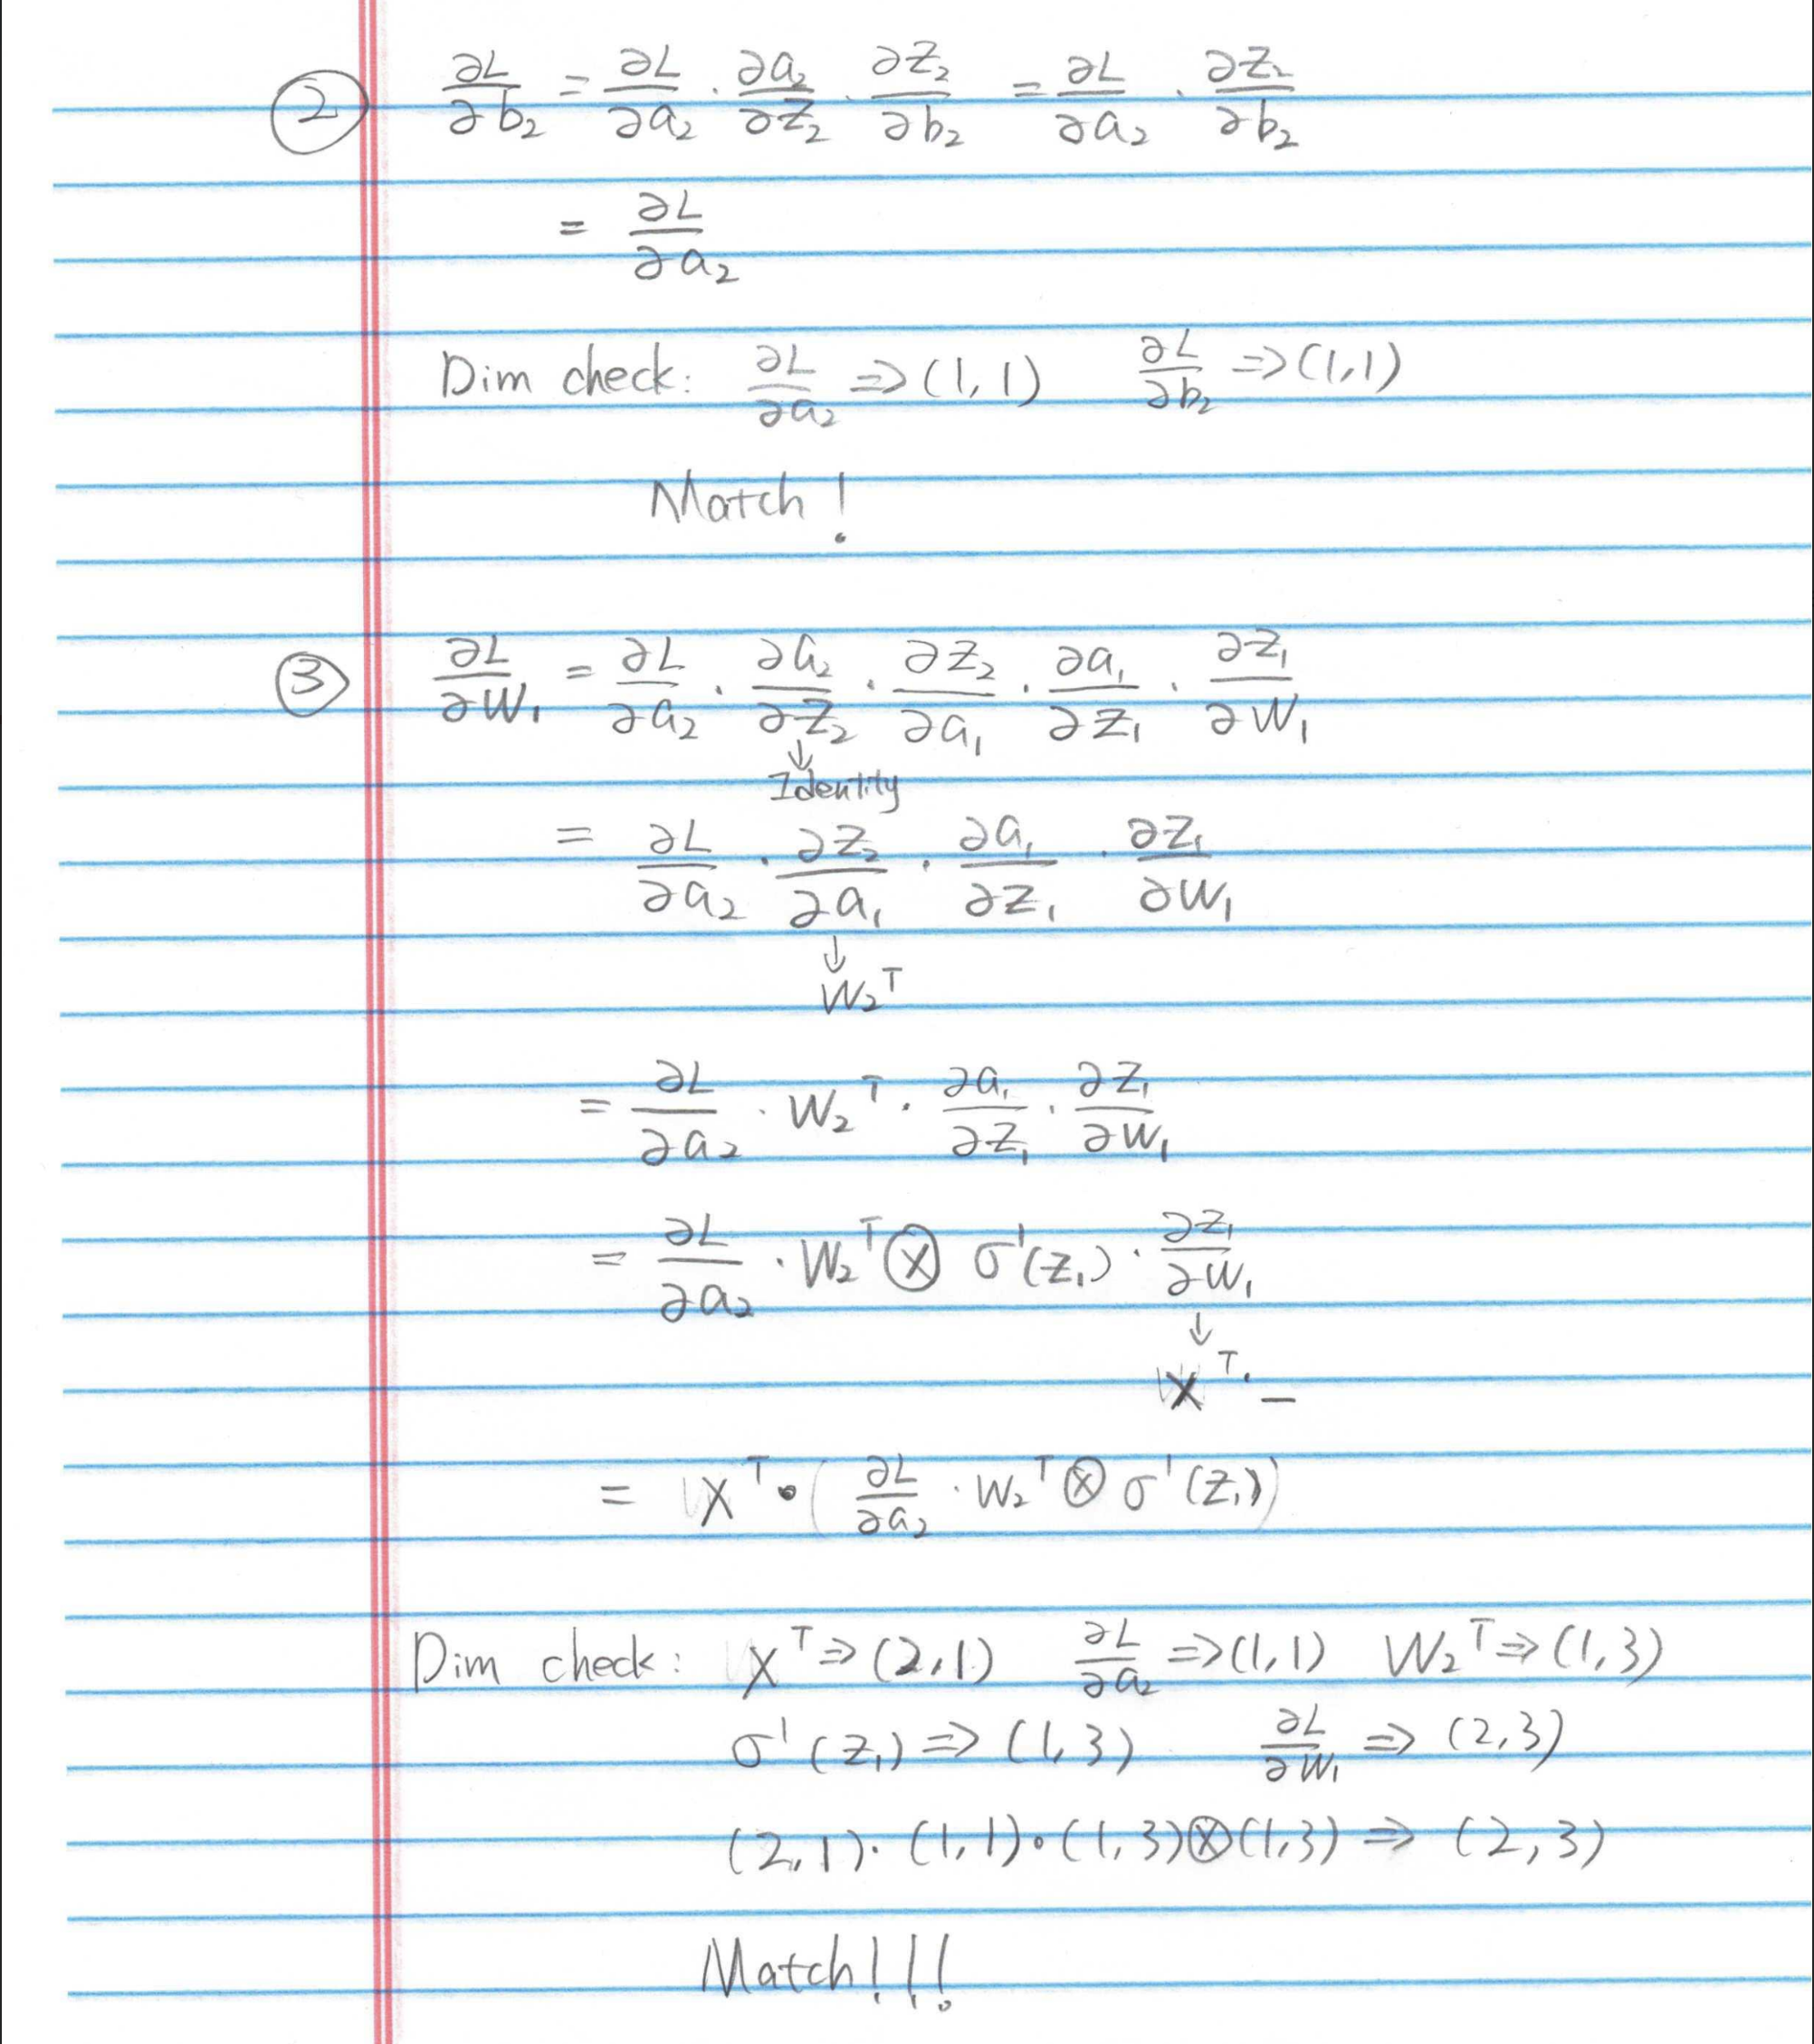 ② ∂L/∂b₂ = ∂L/∂a₂ · ∂a₂/∂z₂ · ∂z₂/∂b₂ = ∂L/∂a₂ · ∂z₂/∂b₂
= ∂L/∂a₂
Dim check: ∂L/∂a₂ => (1,1) ∂L/∂b₂ => (1,1)
Match!
③ ∂L/∂W₁ = ∂L/∂a₂ · ∂a₂/∂z₂ · ∂z₂/∂a₁ · ∂a₁/∂z₁ · ∂z₁/∂W₁
↓
Identity
= ∂L/∂a₂ · ∂z₂/∂a₁ · ∂a₁/∂z₁ · ∂z₁/∂W₁
↓
W₂ᵀ
= ∂L/∂a₂ · W₂ᵀ · ∂a₁/∂z₁ · ∂z₁/∂W₁
= ∂L/∂a₂ · W₂ᵀ ⊗ σ'(z₁) · ∂z₁/∂W₁
↓
Xᵀ · _
= Xᵀ • (∂L/∂a₂ · W₂ᵀ ⊗ σ'(z₁))
Dim check: Xᵀ => (2,1) ∂L/∂a₂ => (1,1) W₂ᵀ => (1,3)
σ'(z₁) => (1,3) ∂L/∂W₁ => (2,3)
(2,1) · (1,1) · (1,3) ⊗ (1,3) => (2,3)
Match!!!